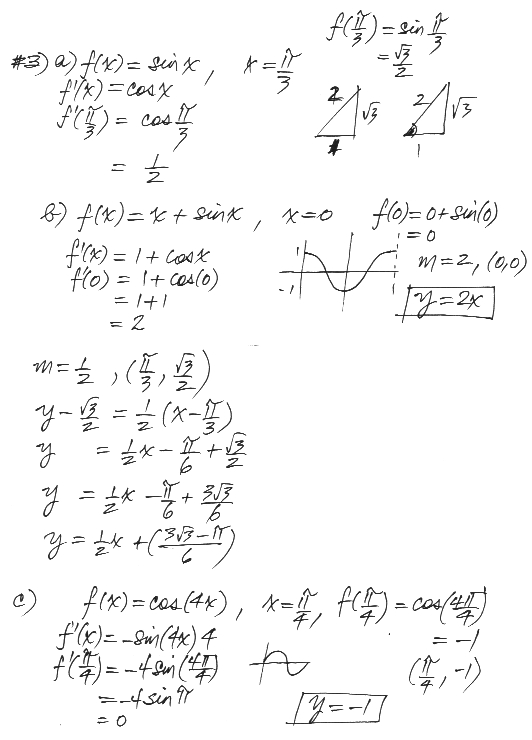 #3) a) f(x) = sin x, x = π/3
f(π/3) = sin π/3
= √3/2
f'(x) = cos x
f'(π/3) = cos π/3
= 1/2
2 √3 1
2 √3 1
b) f(x) = x + sin x, x = 0
f(0) = 0 + sin(0)
= 0
f'(x) = 1 + cos x
f'(0) = 1 + cos(0)
= 1 + 1
= 2
1
-1
m = 2, (0,0)
y = 2x
m = 1/2, (π/3, √3/2)
y - √3/2 = 1/2 (x - π/3)
y = 1/2 x - π/6 + √3/2
y = 1/2 x - π/6 + 3√3/6
y = 1/2 x + (3√3 - π / 6)
c) f(x) = cos(4x), x = π/4, f(π/4) = cos(4π/4)
= -1
f'(x) = -sin(4x) 4
f'(π/4) = -4 sin(4π/4)
(π/4, -1)
= -4 sin π
= 0
y = -1